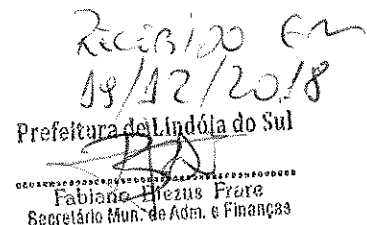 RECEBIDO EM
19/12/2018
Prefeitura de Lindóia do Sul
Fabiano Frare
Secretário Mun. de Adm. e Finanças